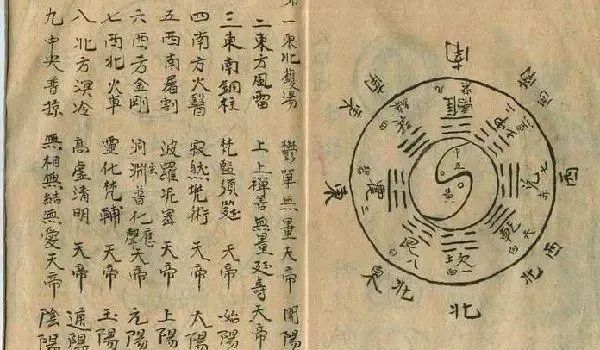 一東北鑊湯 鬱單無量天帝 開陽
二東方風雷 上上禪善無量延壽天帝
三東南銅柱 梵監須延天帝 始陽
四南方火醫 寂然兜術天帝 太陽
五西南屠割 波羅尼蜜天帝 上陽
六西方金剛 洞玄淵普化應聲天帝 元陽
七西北火車 靈化梵輔天帝 玉陽
八北方溟冷 高虛清明天帝 通陽
九中央普掠 無相無結無愛天帝 陰陽
南
西南
西
西北
北
東北
東
東南
離
九
兌
七
乾
坎
一
艮
震